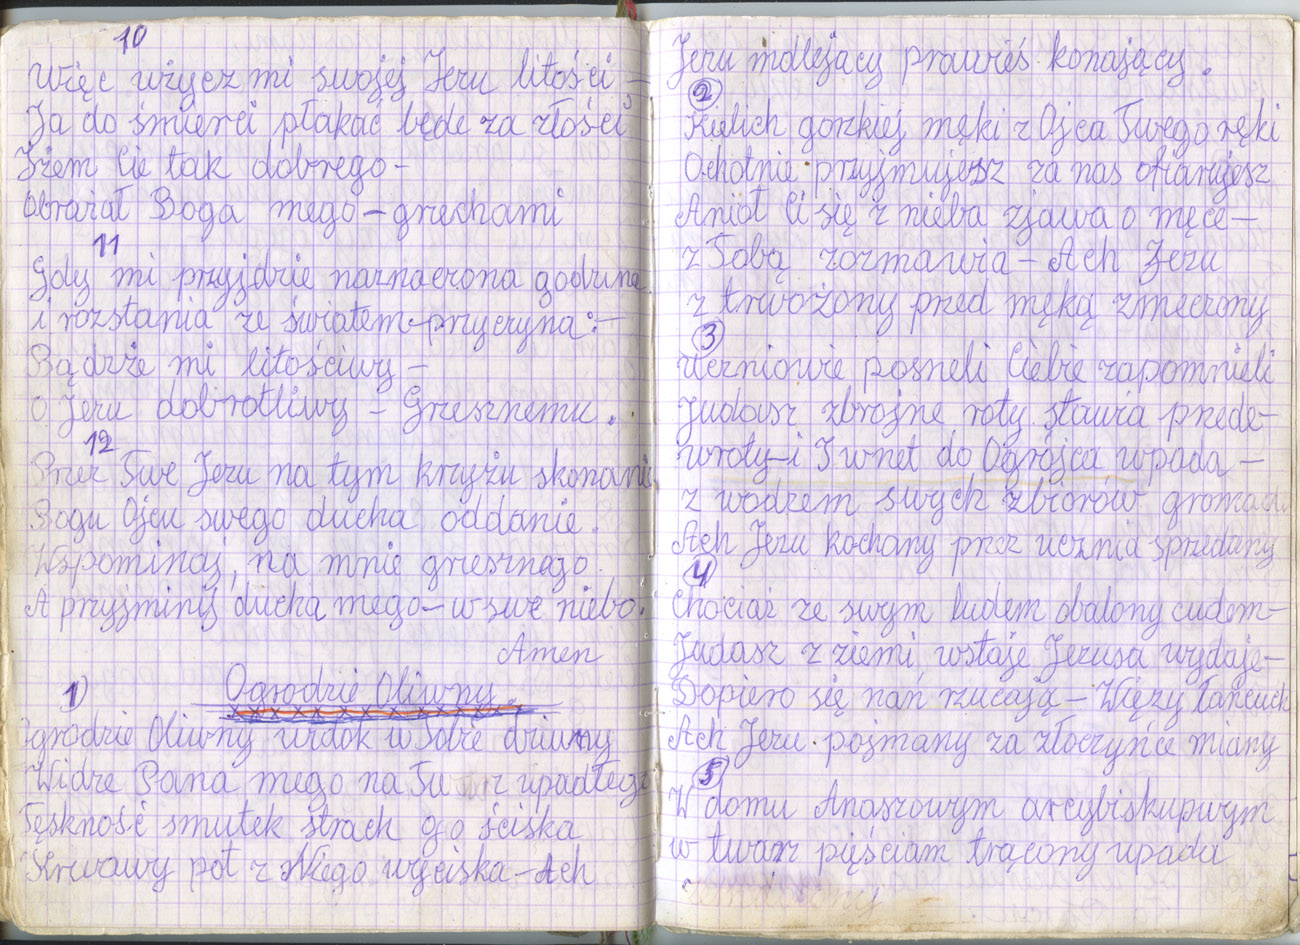 10
Więc użycz mi swojej Jezu litości –
Ja do śmierci płakać będe za złości
Iżem Cie tak dobrego –
Obrażał Boga mego – grzechami
11
Gdy mi przyjdzie naznaczona godzina
i rozstania ze światem przyczyna: –
Bądźże mi litościwy –
O Jezu dobrotliwy – Grzesznemu.
12
Przez Twe Jezu na tym krzyżu skonanie
Bogu Ojcu swego ducha oddanie.
Wspominaj, na mnie grzesznego.
A przyjminij ducha mego – w swe niebo.
Amen
Ogrodzie Oliwny
1)
Ogrodzie Oliwny widok w Tobie dziwny
Widze Pana mego na Twarz upadłego
Tęskność smutek strach go ściska
Krwawy pot z Niego wyciska – Ach
Jezu mdlejący prawieś konający.
2
Kielich gorzkiej męki z Ojca Twego ręki
Ochotnie przyjmujesz za nas ofiarujesz
Anioł Ci się z nieba zjawa o męce –
z Tobą rozmawia – Ach Jezu
z trwożony przed męką zmeczony
3
Uczniowie posneli Ciebie zapomnieli
Judasz zbrojne roty stawia przede –
wroty – i I wnet do Ogrójca wpada –
z wodzem swych zbiorów gromada
Ach Jezu kochany przez ucznia sprzedany
4
Chociaż ze swym ludem obalony cudem –
Judasz z ziemi wstaje Jezusa wydaje –
Dopiero się nań rzucają – Więzy łańcuch
Ach Jezu pojmany za złoczyńce miany
5
W domu Anaszowym arcybiskupwym
w twarz pięściam trącony upada